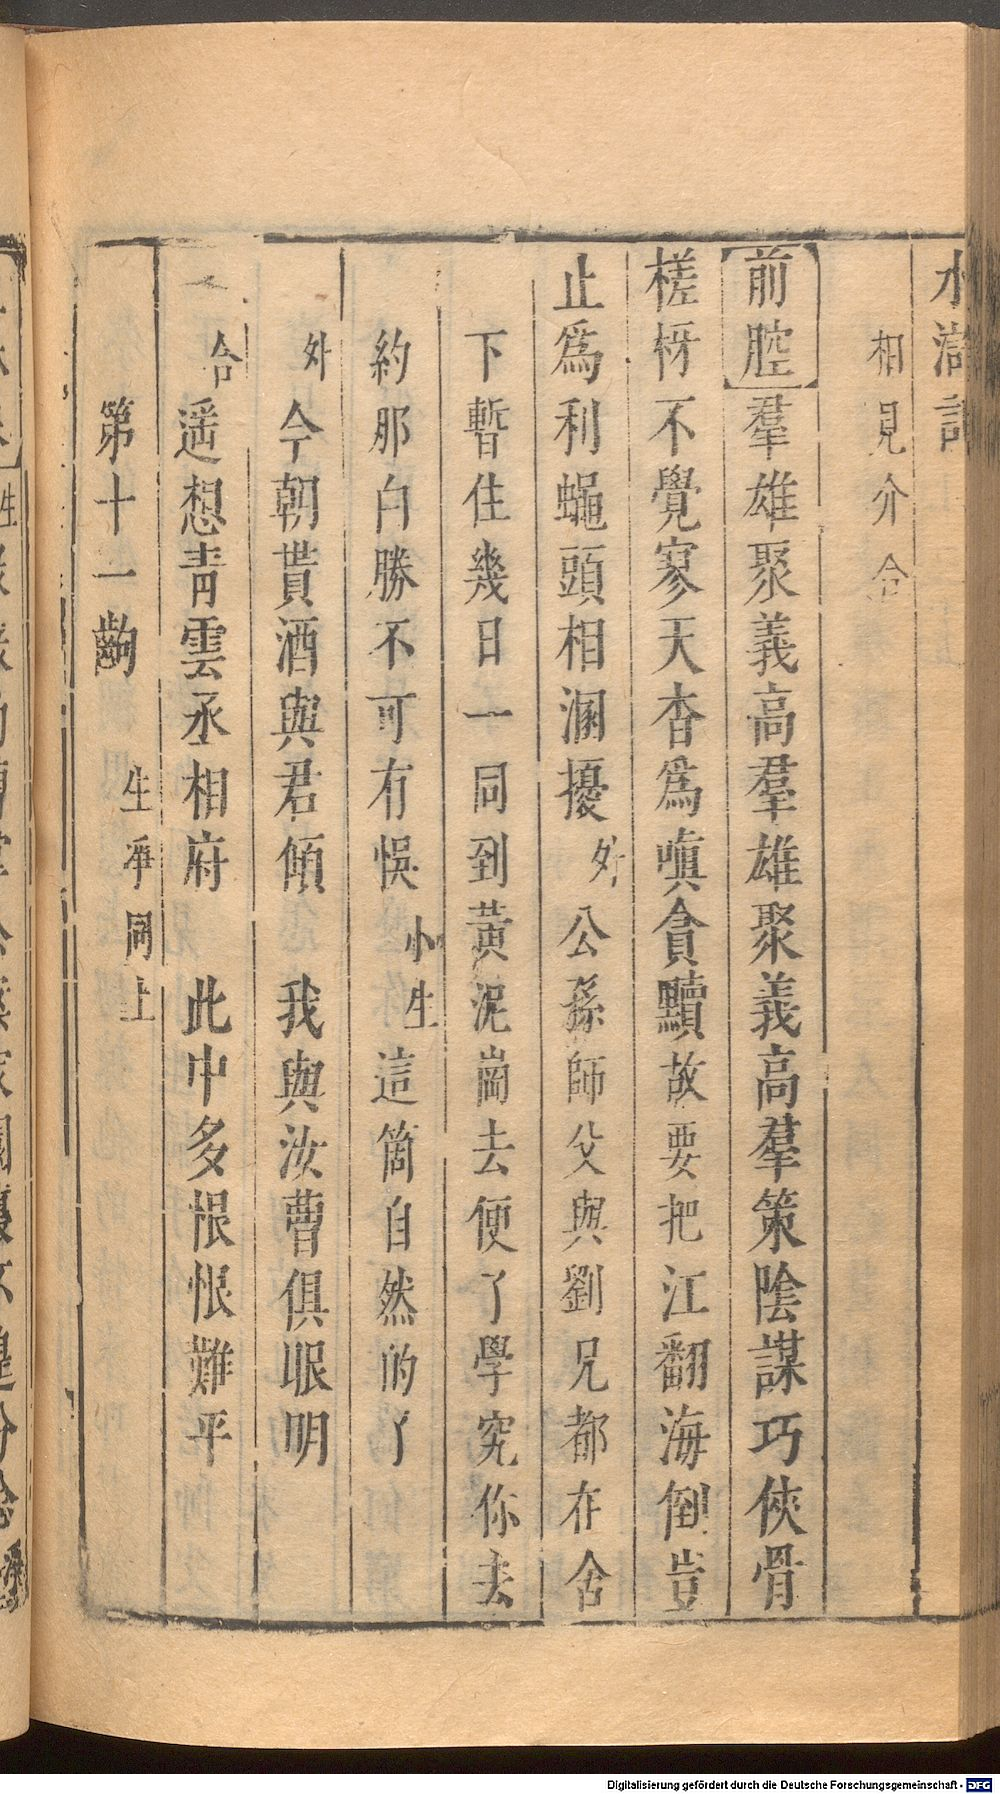 水滸記
相見介合
前腔羣雄聚義高羣雄聚義高羣策隂謀巧俠骨
槎枒不覺寥天杳爲嗔貪黷故要把江翻海倒豈
止爲利蠅頭相溷擾外公孫師父與劉兄都在舍
下暫住幾日一同到黃泥崗去便了學究你去
約那白勝不可有悞小生這箇自然的了
外今朝貰酒與君傾 我與汝曹俱眼明
合遥想靑雲丞相府 此中多恨恨難平
第十一齣 生淨同上
Digitalisierung gefördert durch die Deutsche Forschungsgemeinschaft - DFG